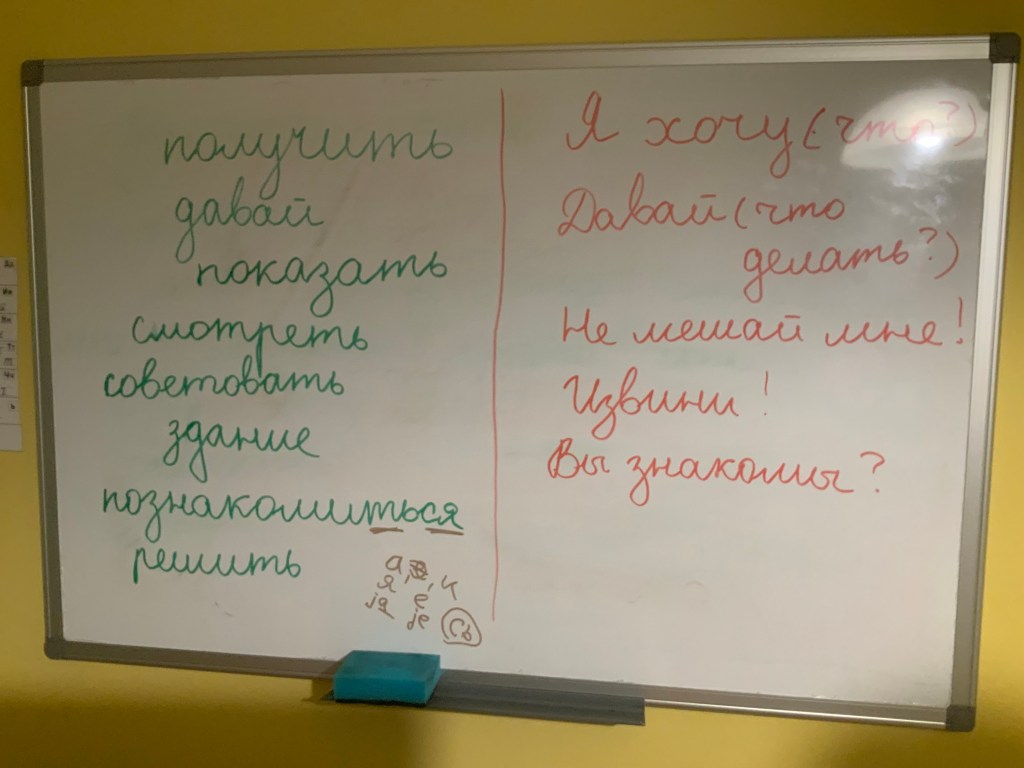 получить
давай
показать
смотреть
советовать
здание
познакомиться
решить
Я хочу (что?)
Давай (что
делать?)
Не мешай мне!
Извини!
Вы знакомы?
я
ja
je
Сь